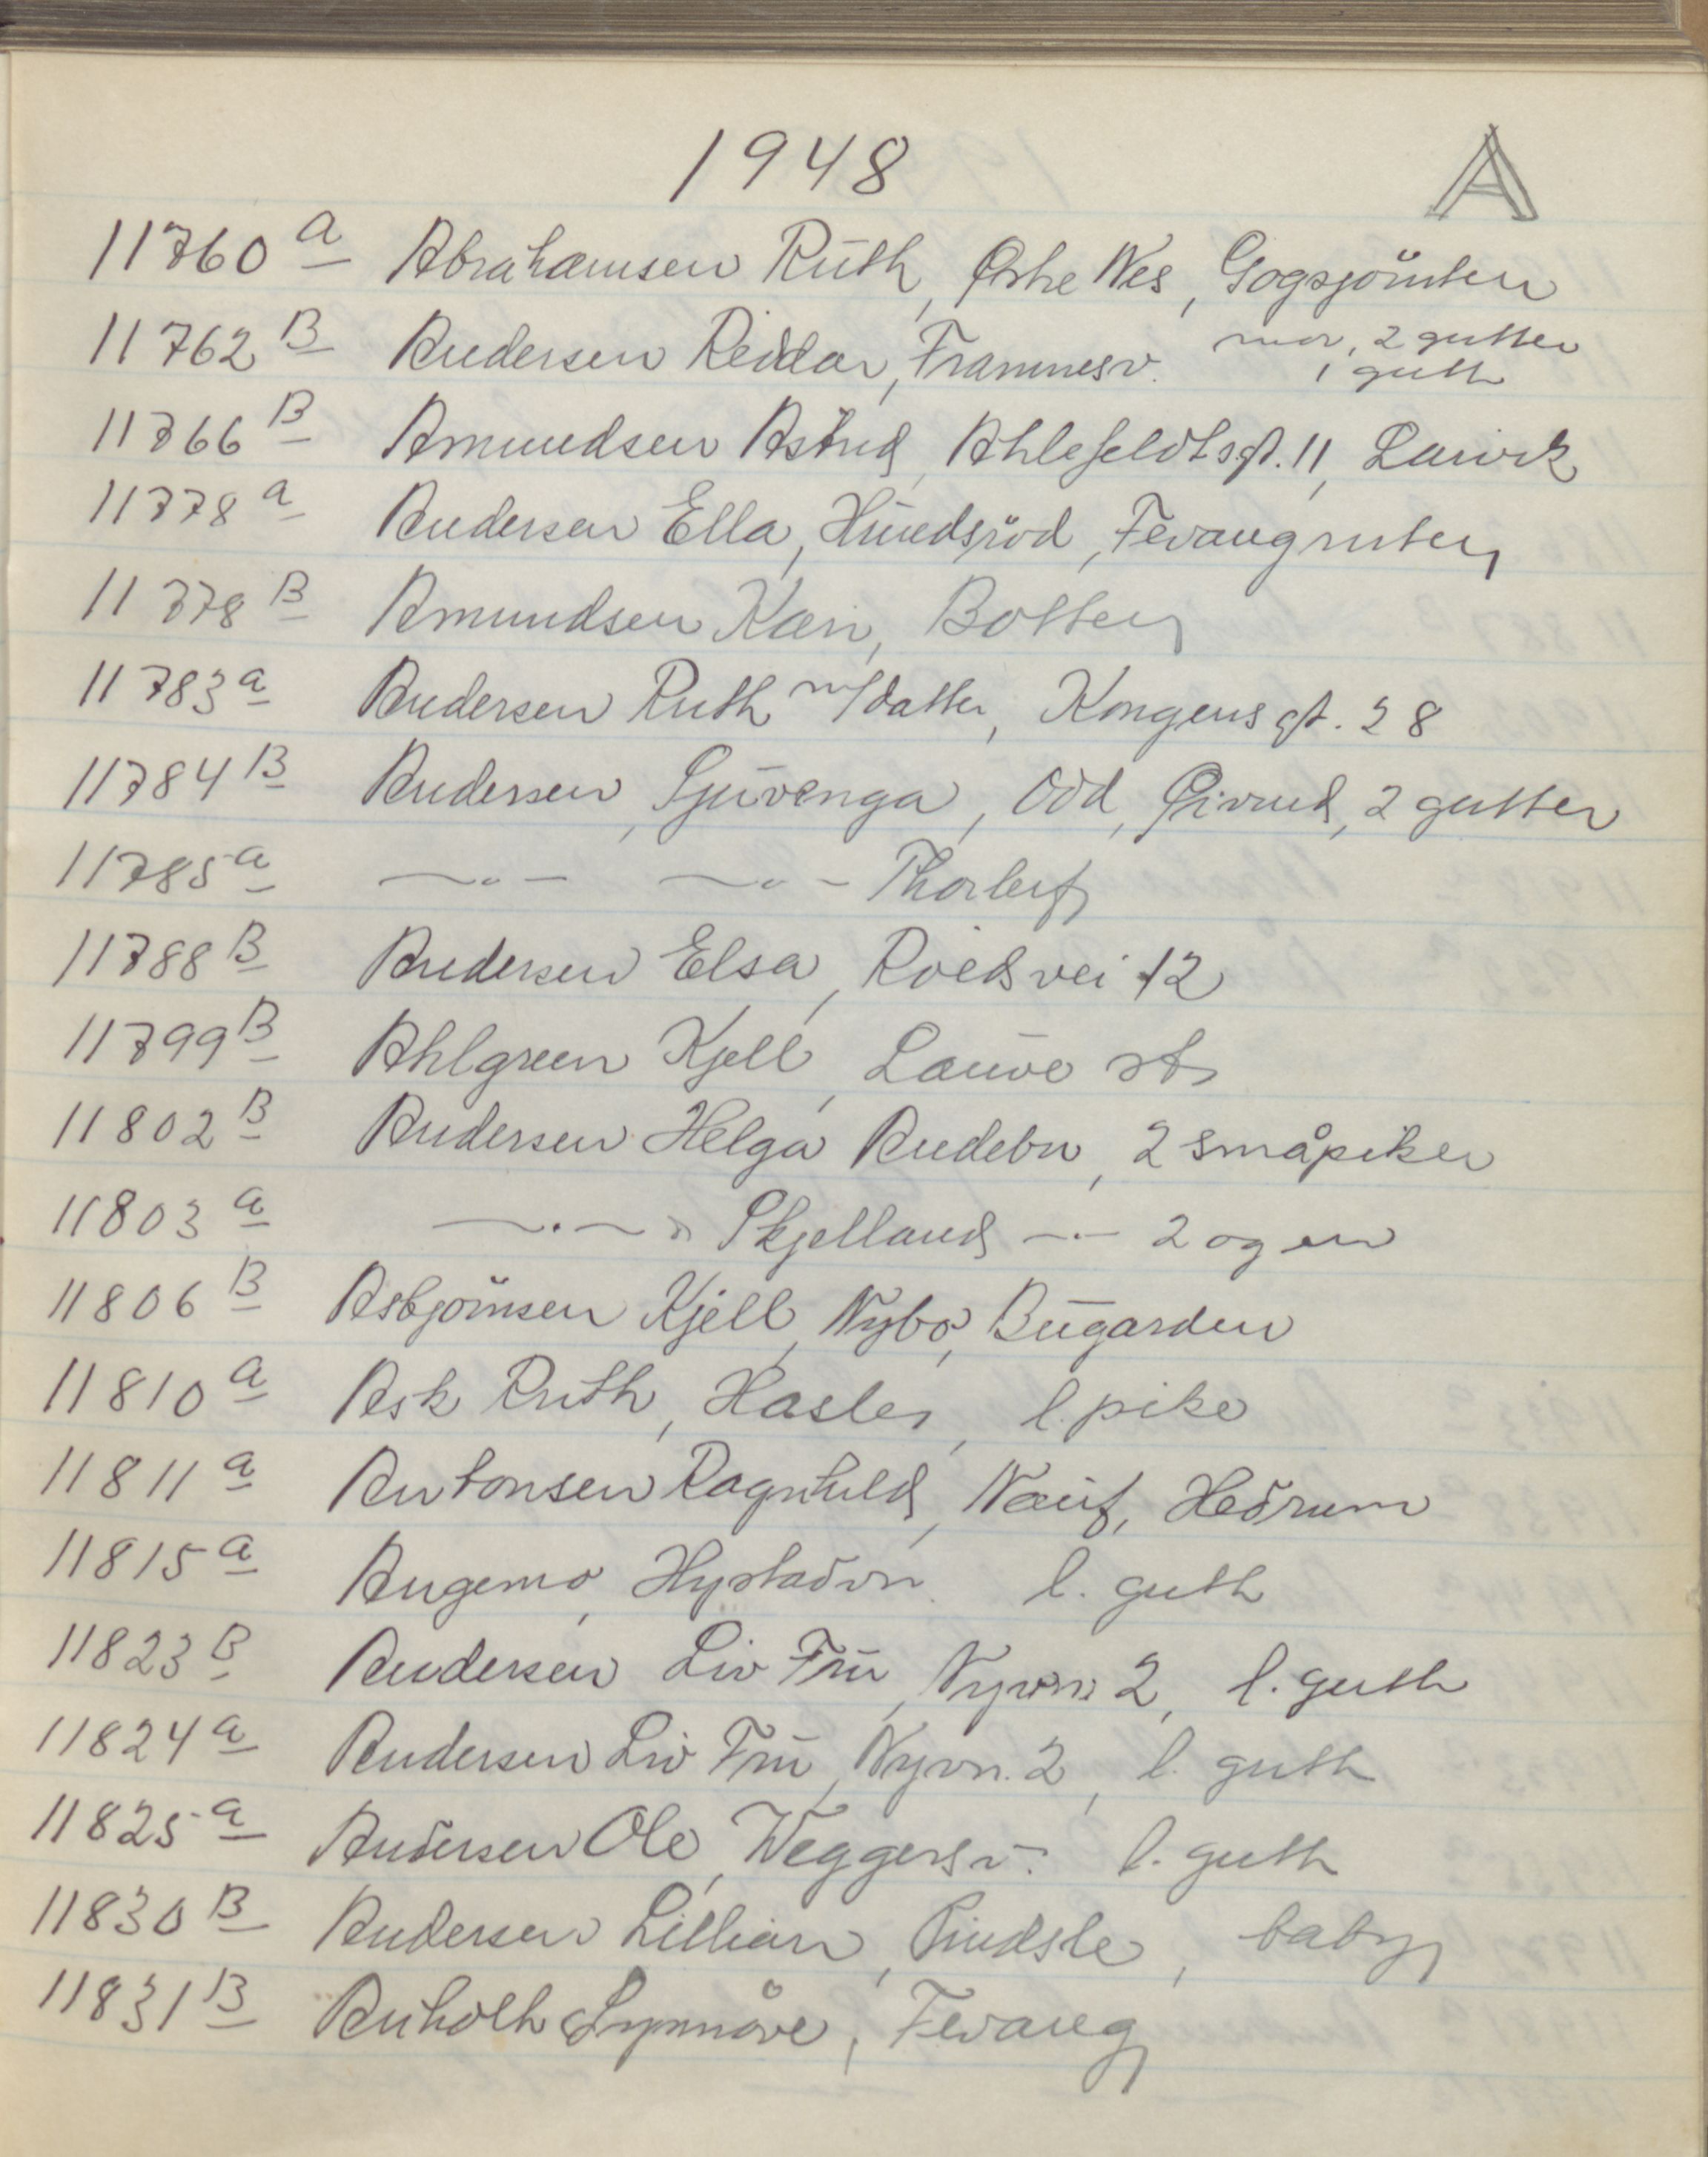 1948 A
11760 a Abrahamsen Ruth, Østre Nes, Gogsjøruten
11762 B Andersen Reidar, Framnesv. mor, 2 gutter
1 gutt
11766 B Amundsen Astrid, Ahlefeldtsgt. 11, Larvik
11778 a Andersen Ella, Hundsrød, Fevangruten
11778 B Amundsen Kari, Botten
11783 a Andersen Ruth m/datter, Kongensgt. 28
11784 B Andersen, Sjuvenga, Odd, Øivind, 2 gutter
11785 a —〃— —〃— Thorleif
11788 B Andersen Elsa, Roedsvei 12
11799 B Ahlgreen Kjell, Lauve st
11802 B Andersen Helga Andebu, 2 småpiker
11803 a —〃— Skjelland —〃— 2 og en
11806 B Asbjørnsen Kjell, Nybo, Bugarden
11810 a Ask Ruth, Hasle, l. pike
11811 a Antonsen Ragnhild, Nauf, Hedrum
11815 a Angemo, Hystadvn. l. gutt
11823 B Andersen Liv Fru, Nyvn. 2, l. gutt
11824 a Andersen Liv Fru, Nyvn. 2, l. gutt
11825 a Andersen Ole, Weggersv. l. gutt
11830 B Andersen Lillian, Pindsle, baby
11831 B Anholt Synnøve, Fevang